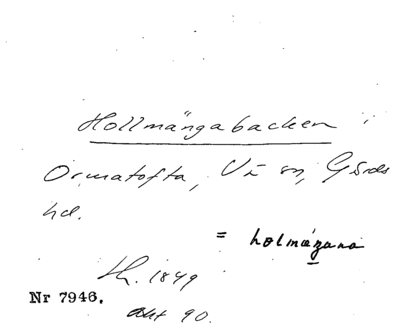 Hollmängabacken
Ormatofta, Vä sn, Gärds
hd.
= holmázana
h. 1849
Nr 7946.
akt 90.